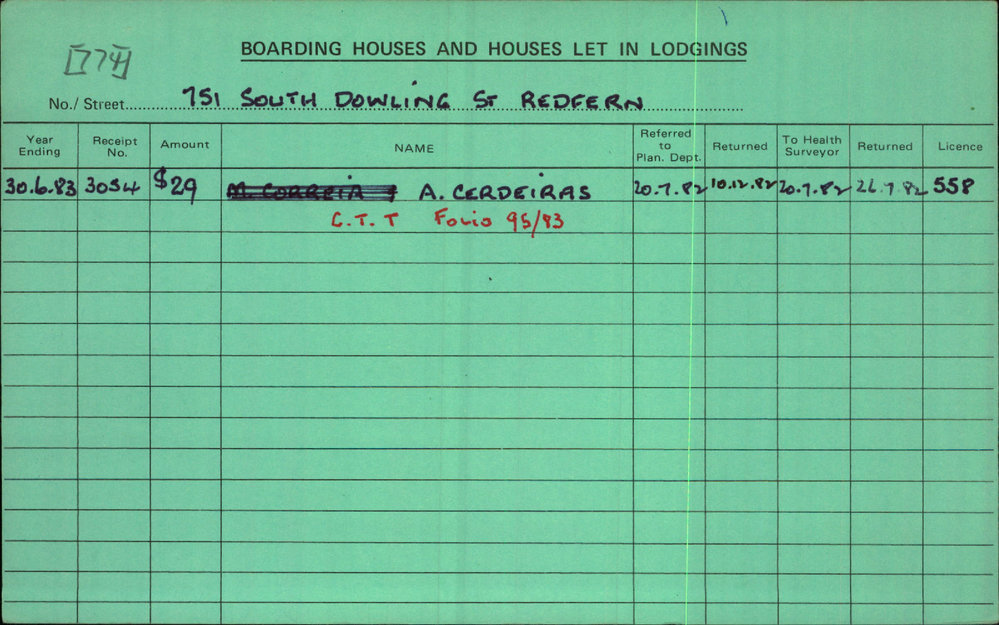 [774]
BOARDING HOUSES AND HOUSES LET IN LODGINGS
No./ Street 751 SOUTH DOWLING ST REDFERN
Year Ending Receipt No. Amount NAME Referred to Plan. Dept. Returned To Health Surveyor Returned Licence
30.6.83 3054 $29 M. CORREIA & A. CERDEIRAS 20.7.82 10.12.82 20.7.82 26.7.82 558
C.T.T Folio 95/83